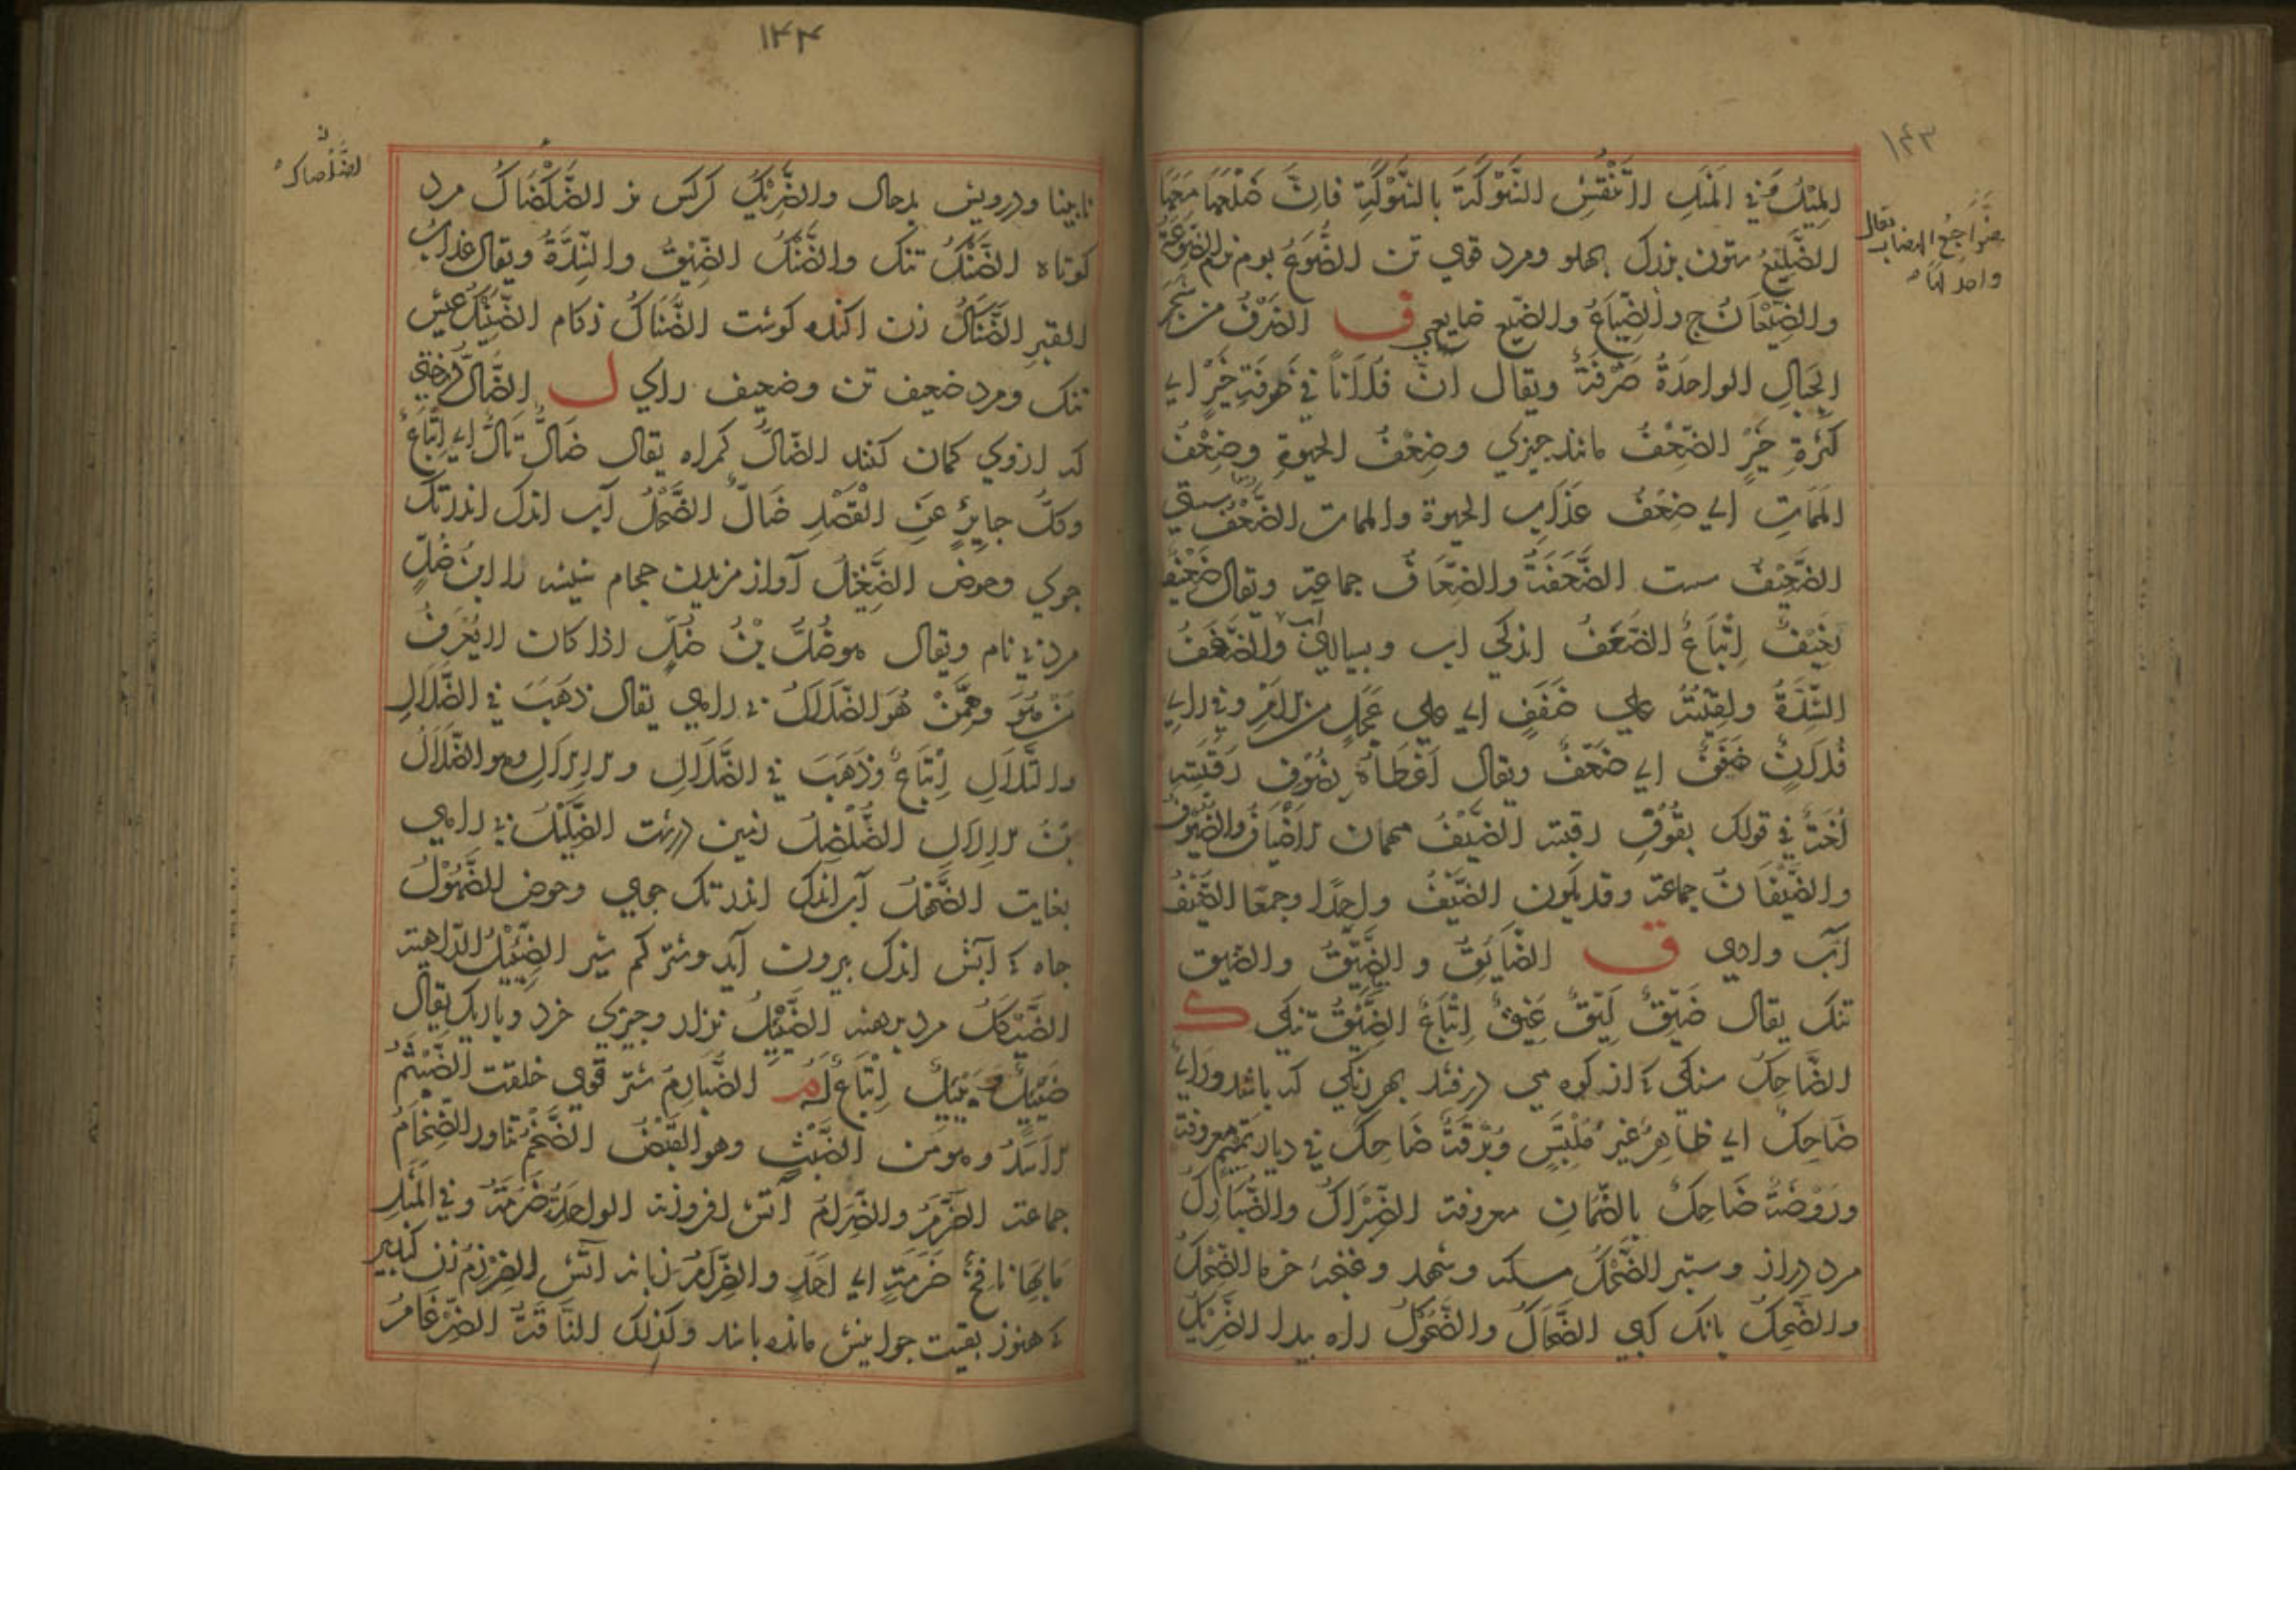 ۱۴۳
المیل فی المثل لا تنقش الشوکة بالشوکة فان ضلعها معها
الضلیع ستون بزرک پهلو و مرد قوی تن الضوع بوم نر الضوعة
والضیعان ج والضیاع والضیع ضایعی ف الضرف من شجر
الجبال الواحدة ضرفة ویقال ان فلانا فی ضرفة خیر ای
کثرة خیر الضعف مانند چیزی وضعف الحیوة وضعف
الممات ای ضعف عذاب الحیوة والممات الضعف سستی
الضعیف سست الضعفة والضعاف جماعة ویقال ضعیف
نعیف اتباع الضفف اندکی اب و بسیاری والضفف
الشدة ولقیته علی ضفف ای علی عجل من الامر وفی رای
فلان ضفف ای ضعف ویقال اعطاه بضوف رقبته
لغة فی قولک بقوف رقبته الضیف مهمان الاضیاف والضیوف
والضیفان جماعة وقد یکون الضیف واحدا وجمعا الضیف
آب وادی ق الضایق والضیق والضیق
تنک یقال ضیق لیق عیق اتباع الضیق تنکی ک
الضاحک سنکی که از کوه می درفشد بهر رنکی که باشد ورای
ضاحک ای ظاهر غیر ملتبس وبرقة ضاحک فی دیار تمیم معروفة
وروضة ضاحک بالضمان معروفة الضبراک والضبارک
مرد دراز و ستبر الضحک مسکه و شهد و غنچه خرما الضحک
والضحک بانک کپی الضحاک والضحوک راه پیدا الضریک
۱۴۴
نابینا و درویش بدحال والضریک کرکس نر الضکضاک مرد
کوتاه الضنک تنک والضنک الضیق والشدة ویقال عذاب
القبر الضناک زن اکنده کوشت الضناک زکام الضنیک عیش
تنک و مرد ضعیف تن و ضعیف رای ل الضال درختی
که ازوی کمان کنند الضال کمراه یقال ضال تال ای اتباع
وکل جایر عن القصد ضال الضحل آب اندک اندر تک
جوی و حوض الضغیل آواز مزیدن حجام شیشه را ابن ضل
مردی نام ویقال هو ضل بن ضل اذا کان لا یعرف
من هو و ممن هو الضلال بی راهی یقال ذهب فی الضلال
والتلال اتباع وذهب فی الضلال والالال وهو الضلال
بن الالال الضلضل زمین درشت الضلیل بی راهی
بغایت الضحل آب اندک اندر تک جوی و حوض الضهول
چاه که آبش اندک بیرون آید و شتر کم شیر الضئیل الداهیة
الضیکل مرد برهنه الضئیل نزار و چیزی خرد و باریک یقال
ضئیل بئیل اتباع له م الضبارم شتر قوی خلقت الضیثم
الاسد و هو من الضبث وهو القبض الضخم تناور الضخام
جماعة الضرم والضرام آتش افروزنه الواحدة ضرمة وفی المثل
ما بها نافخ ضرمة ای احد والضرام زبانه آتش الضرزم زن کبیر
که هنوز بقیت جوانیش مانده باشد وکذلک الناقة الضرغام